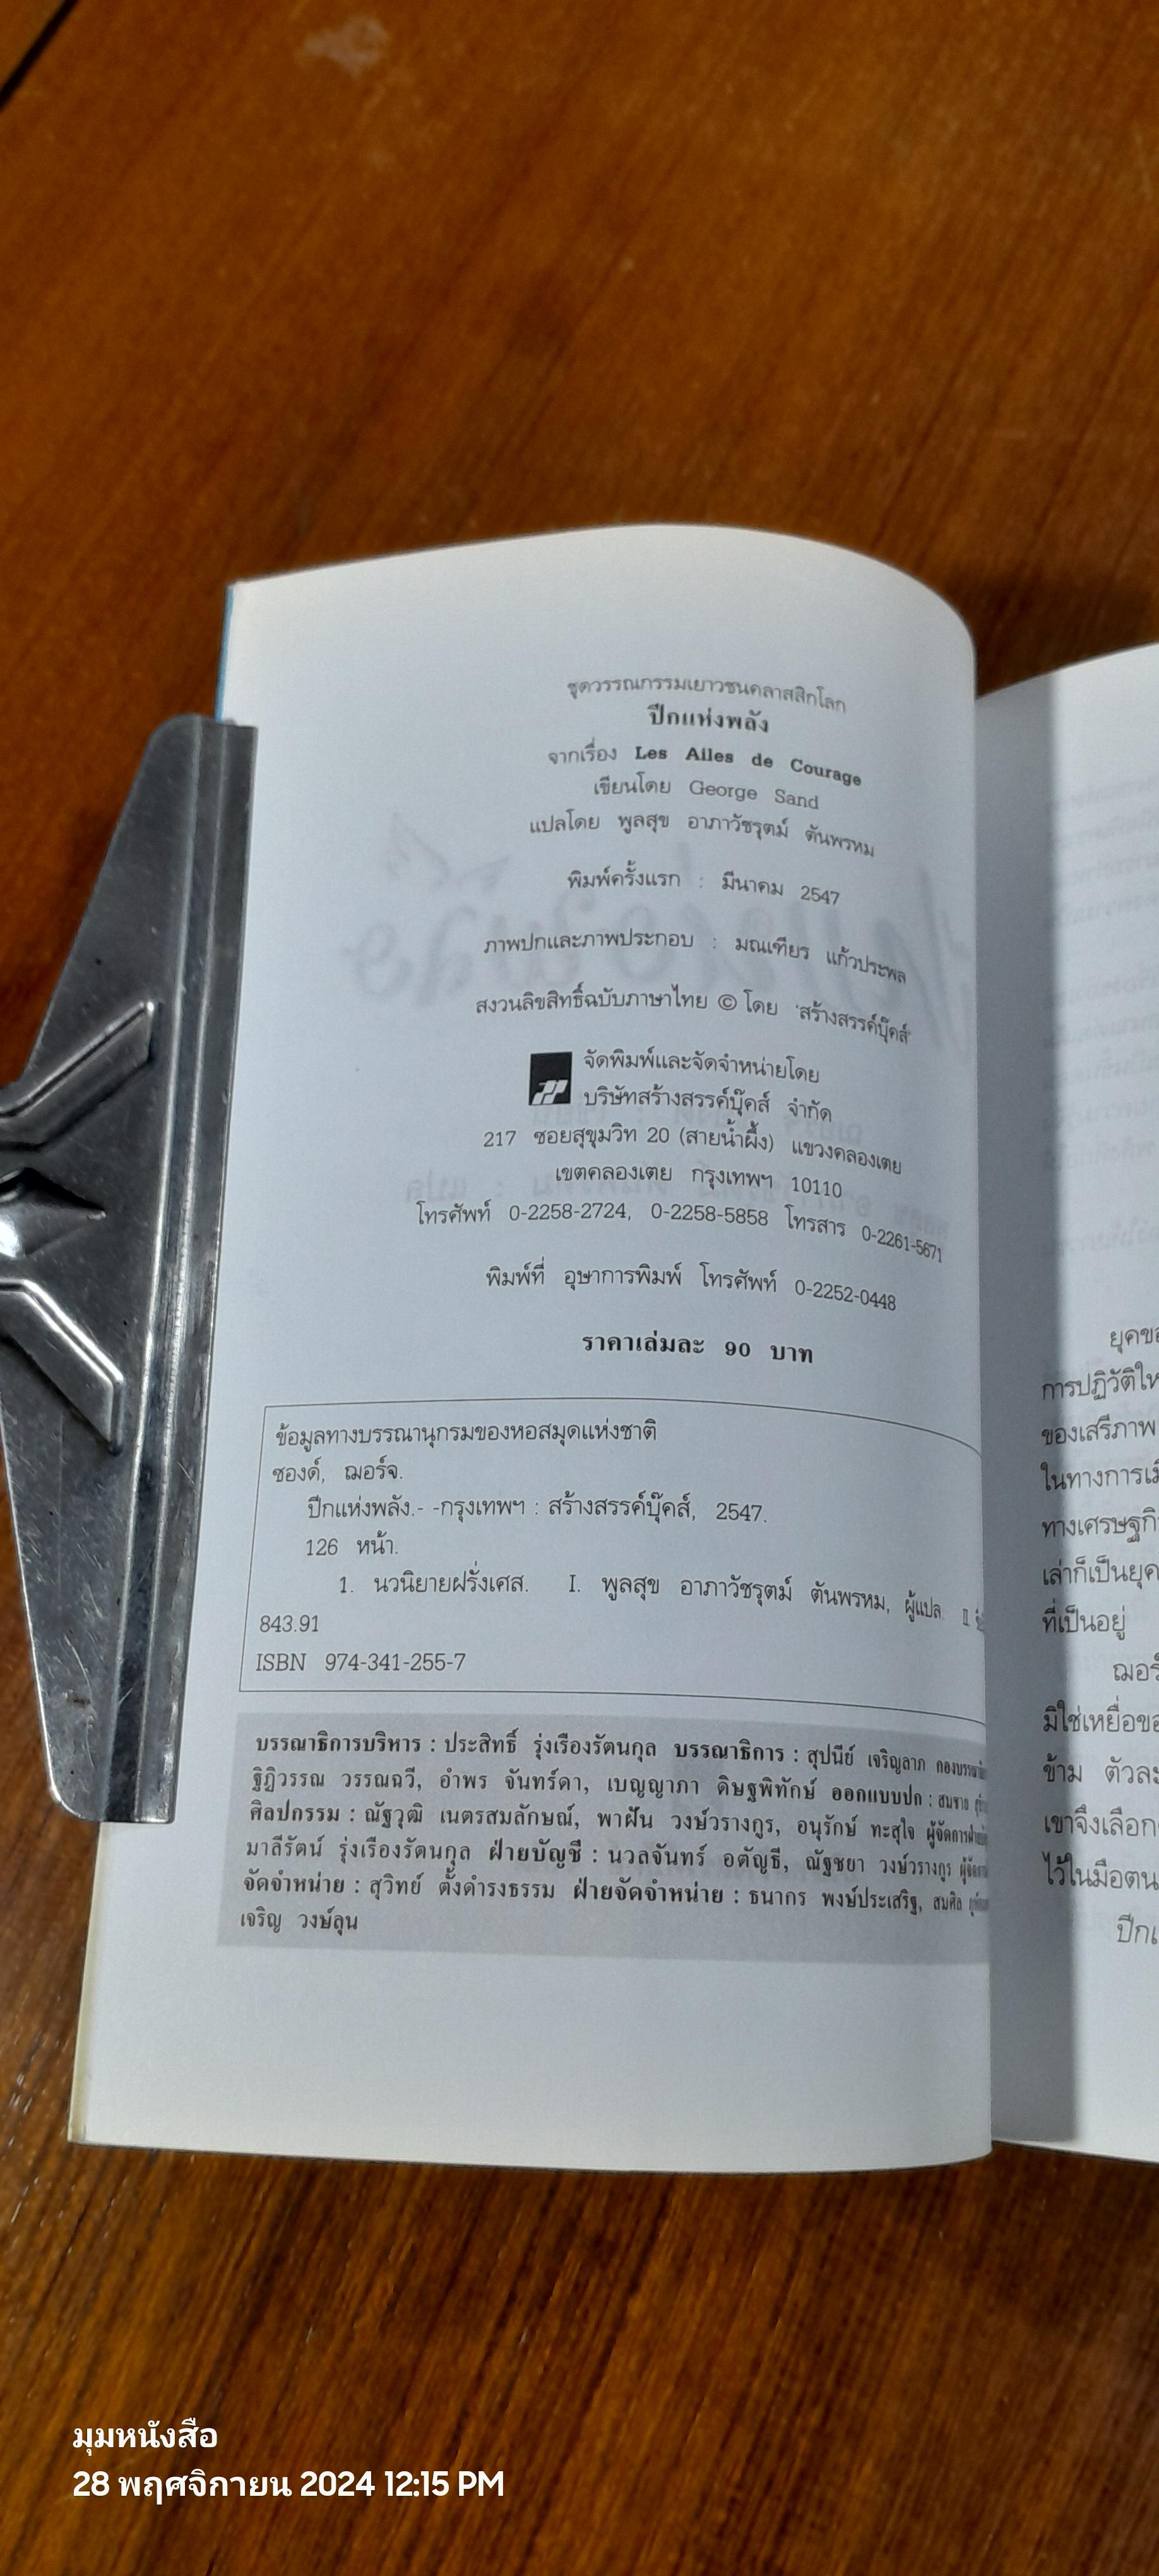 ชุดวรรณกรรมเยาวชนคลาสสิกโลก
ปีกแห่งพลัง
จากเรื่อง Les Ailes de Courage
เขียนโดย George Sand
แปลโดย พูลสุข อาภาวัชรุตม์ ตันพรหม
พิมพ์ครั้งแรก : มีนาคม 2547
ภาพปกและภาพประกอบ : มณเฑียร แก้วประพล
สงวนลิขสิทธิ์ฉบับภาษาไทย © โดย 'สร้างสรรค์บุ๊คส์'
จัดพิมพ์และจัดจำหน่ายโดย
บริษัทสร้างสรรค์บุ๊คส์ จำกัด
217 ซอยสุขุมวิท 20 (สายน้ำผึ้ง) แขวงคลองเตย
เขตคลองเตย กรุงเทพฯ 10110
โทรศัพท์ 0-2258-2724, 0-2258-5858 โทรสาร 0-2261-5671
พิมพ์ที่ อุษาการพิมพ์ โทรศัพท์ 0-2252-0448
ราคาเล่มละ 90 บาท
ข้อมูลทางบรรณานุกรมของหอสมุดแห่งชาติ
ซองด์, ฌอร์จ.
ปีกแห่งพลัง.- -กรุงเทพฯ : สร้างสรรค์บุ๊คส์, 2547.
126 หน้า.
1. นวนิยายฝรั่งเศส. I. พูลสุข อาภาวัชรุตม์ ตันพรหม, ผู้แปล. II
843.91
ISBN 974-341-255-7
บรรณาธิการบริหาร : ประสิทธิ์ รุ่งเรืองรัตนกุล บรรณาธิการ : สุปนีย์ เจริญลาภ
ฐิฏิวรรณ วรรณฉวี, อำพร จันทร์ดา, เบญญาภา ดิษฐพิทักษ์ ออกแบบปก : สมชาย
ศิลปกรรม : ณัฐวุฒิ เนตรสมลักษณ์, พาฝัน วงษ์วรางกูร, อนุรักษ์ ทะสุใจ
มาลีรัตน์ รุ่งเรืองรัตนกุล ฝ่ายบัญชี : นวลจันทร์ อตัญธี, ณัฐชยา วงษ์วรางกูร
จัดจำหน่าย : สุวิทย์ ตั้งดำรงธรรม ฝ่ายจัดจำหน่าย : ธนากร พงษ์ประเสริฐ, สมศิล
เจริญ วงษ์ลุน
ยุคขอ
การปฏิวัติให
ของเสรีภาพ
ในทางการเมื
ทางเศรษฐกิ
เล่าก็เป็นยุค
ที่เป็นอยู่
ฌอร์
มิใช่เหยื่อขอ
ข้าม ตัวละ
เขาจึงเลือก
ไว้ในมือตน
ปีกแ
มุมหนังสือ
28 พฤศจิกายน 2024 12:15 PM